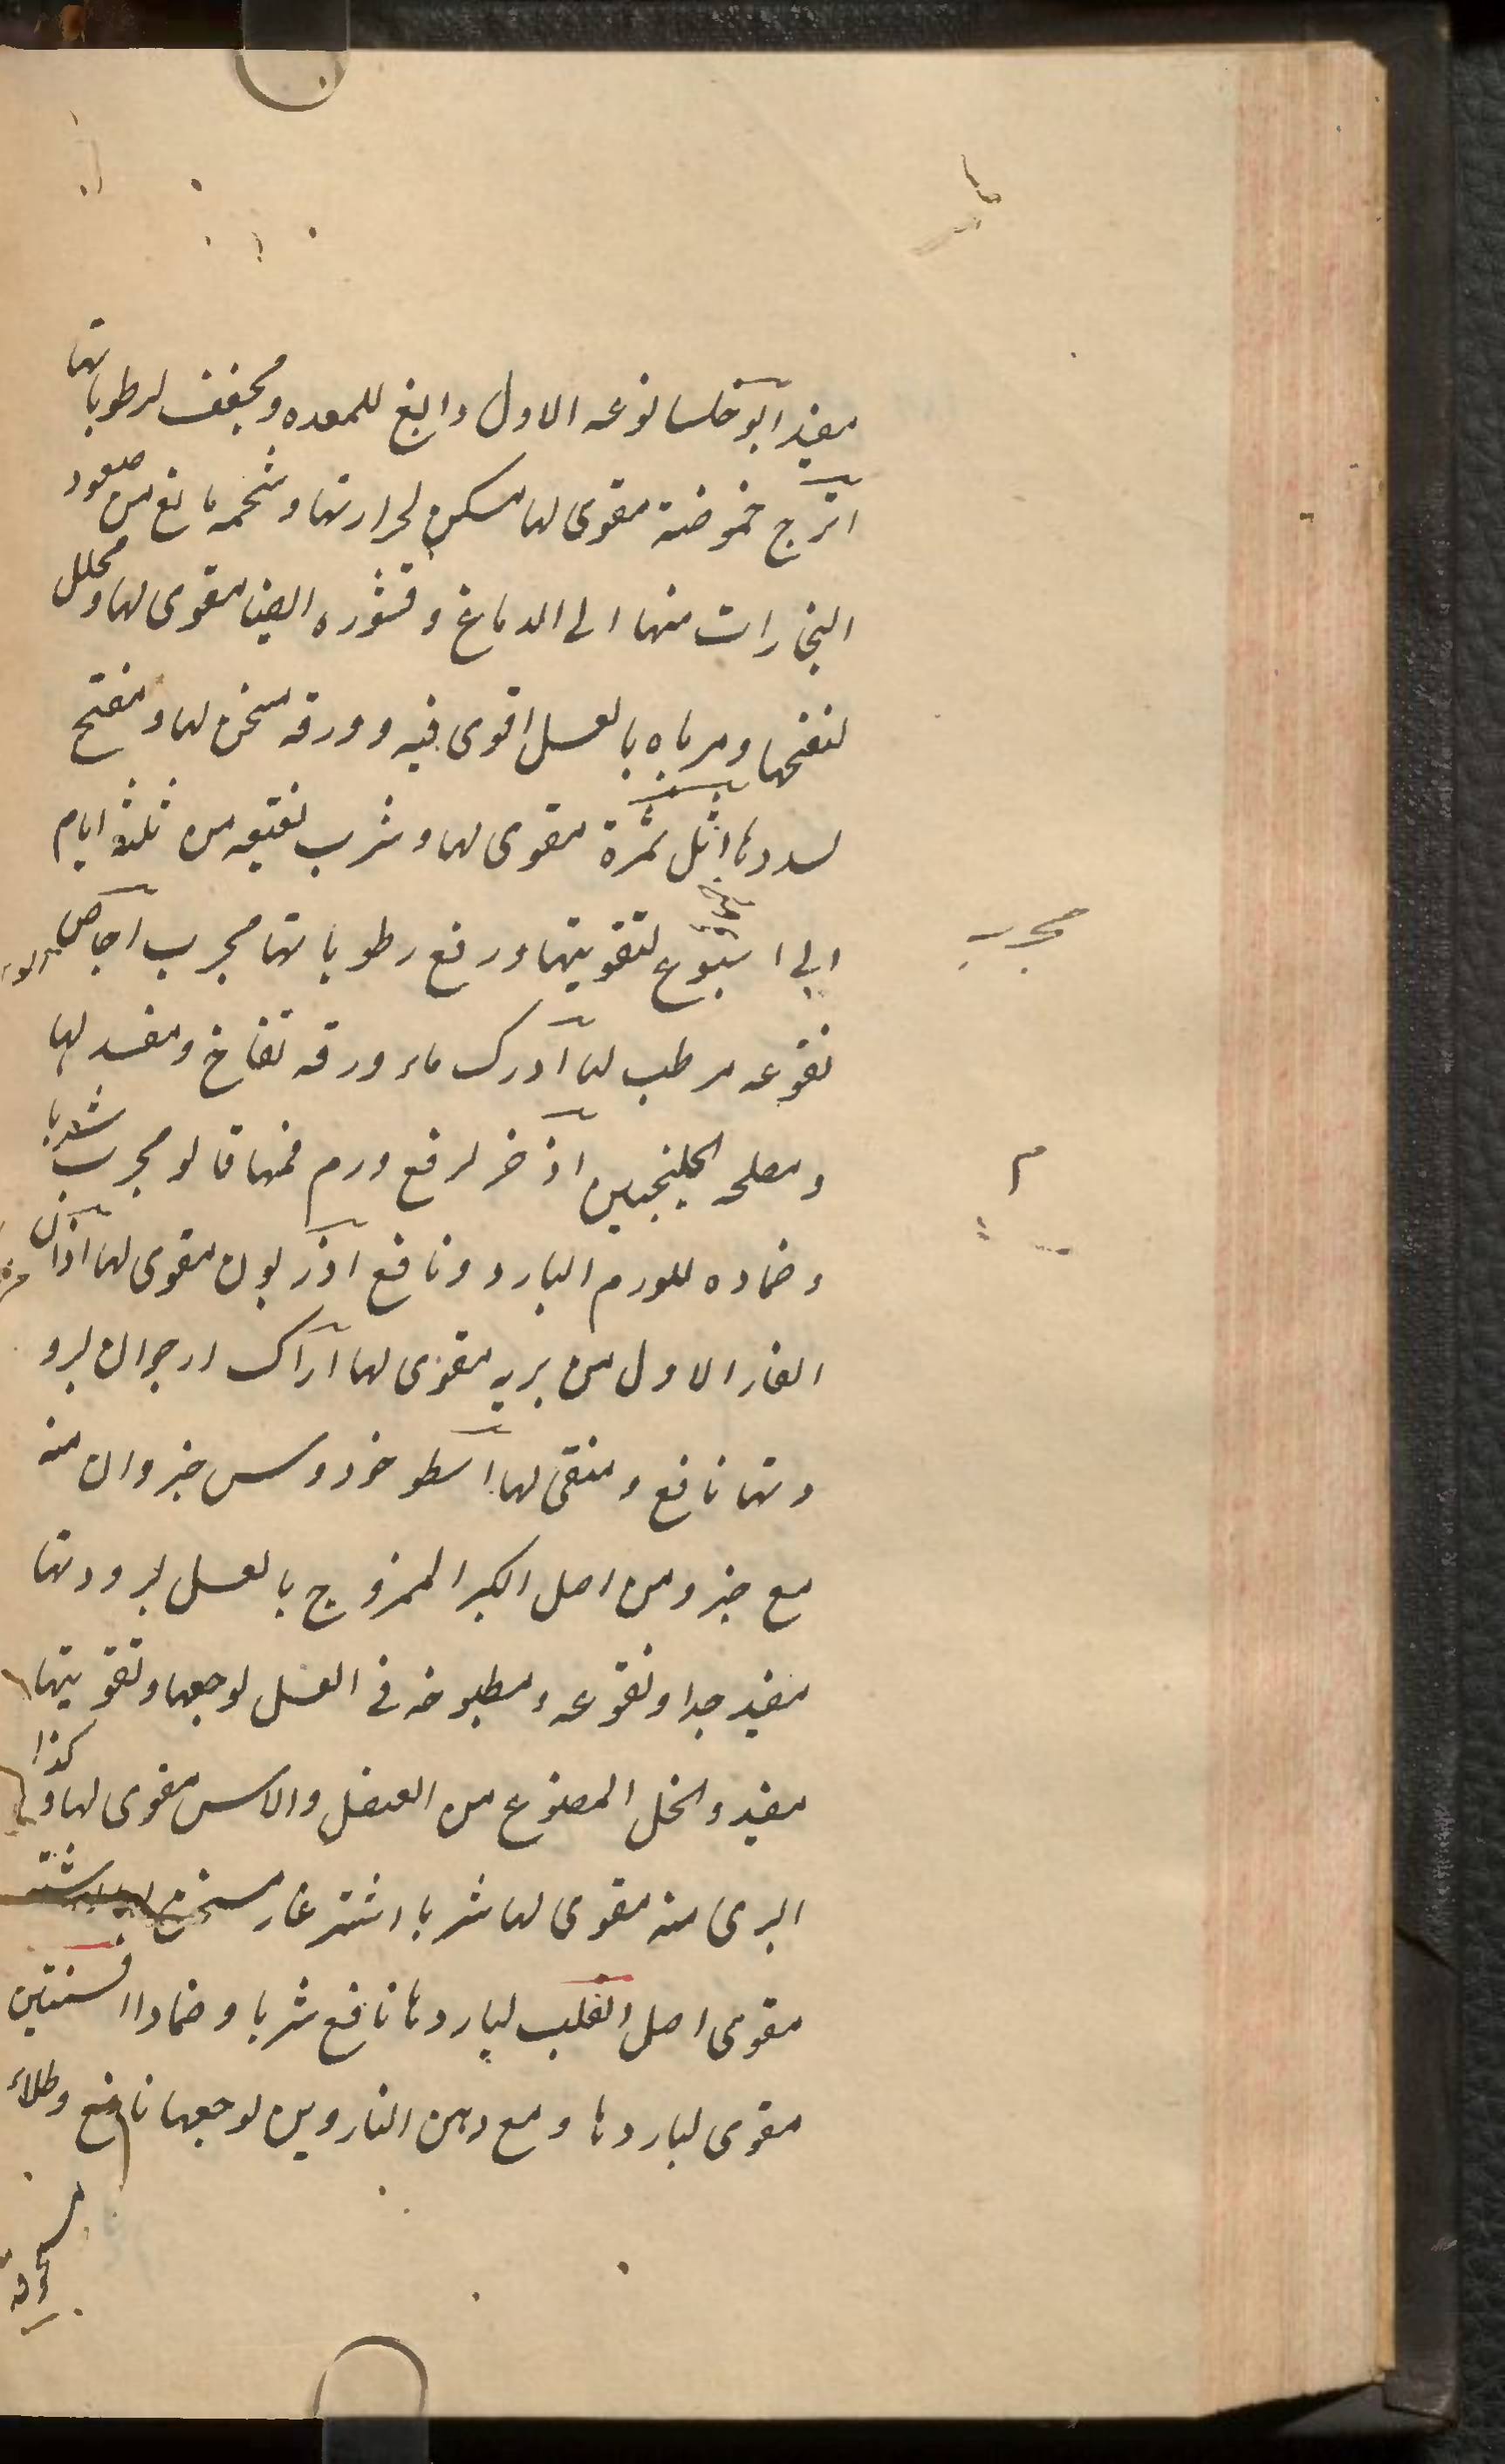 مفيد ابوخلسا نوعه الاول دابغ للمعده ومجفف لرطوباتها
اترج حموضة مقوى لها مسكن لحرارتها وشحمه مانع من صعود
البخارات منها الى الدماغ وقشوره ايضا مقوى لها ومحلل
لنفخها ومرباه بالعسل اقوى فيه وورقه مسخن لها ومفتح
لسددها اثل ثمرة مقوى لها وشرب نقيعه من ثلثة ايام
الى اسبوع لتقويتها ورفع رطوباتها مجرب اجاص
مجرب
نقوعه مرطب لها ادرك ماء ورقه نفاخ ومفسد لها
ومصلحه الجلنجبين اذخر لرفع ورم فمها قالو مجرب شربا
م
وضماده للورم البارد ونافع اذريون مقوى لها اذان
الفار الاول من بريه مقوى لها اراك ارجوان لبرو
دتها نافع ومنقى لها اسطوخودوس جزوان منه
مع جزو من اصل الكبر الممزوج بالعسل لبرودتها
مفيد جدا ونقوعه ومطبوخه فى العسل لوجعها وتقويتها
مفيد والخل المصنوع من العنصل والاس مقوى لها وكذا
البرى منه مقوى لها شربا اشترغار مسخن
مقوى اصل القلب لباردها نافع شربا وضمادا افسنتين
مقوى لباردها ومع دهن الناردين لوجعها نافع وطلاء